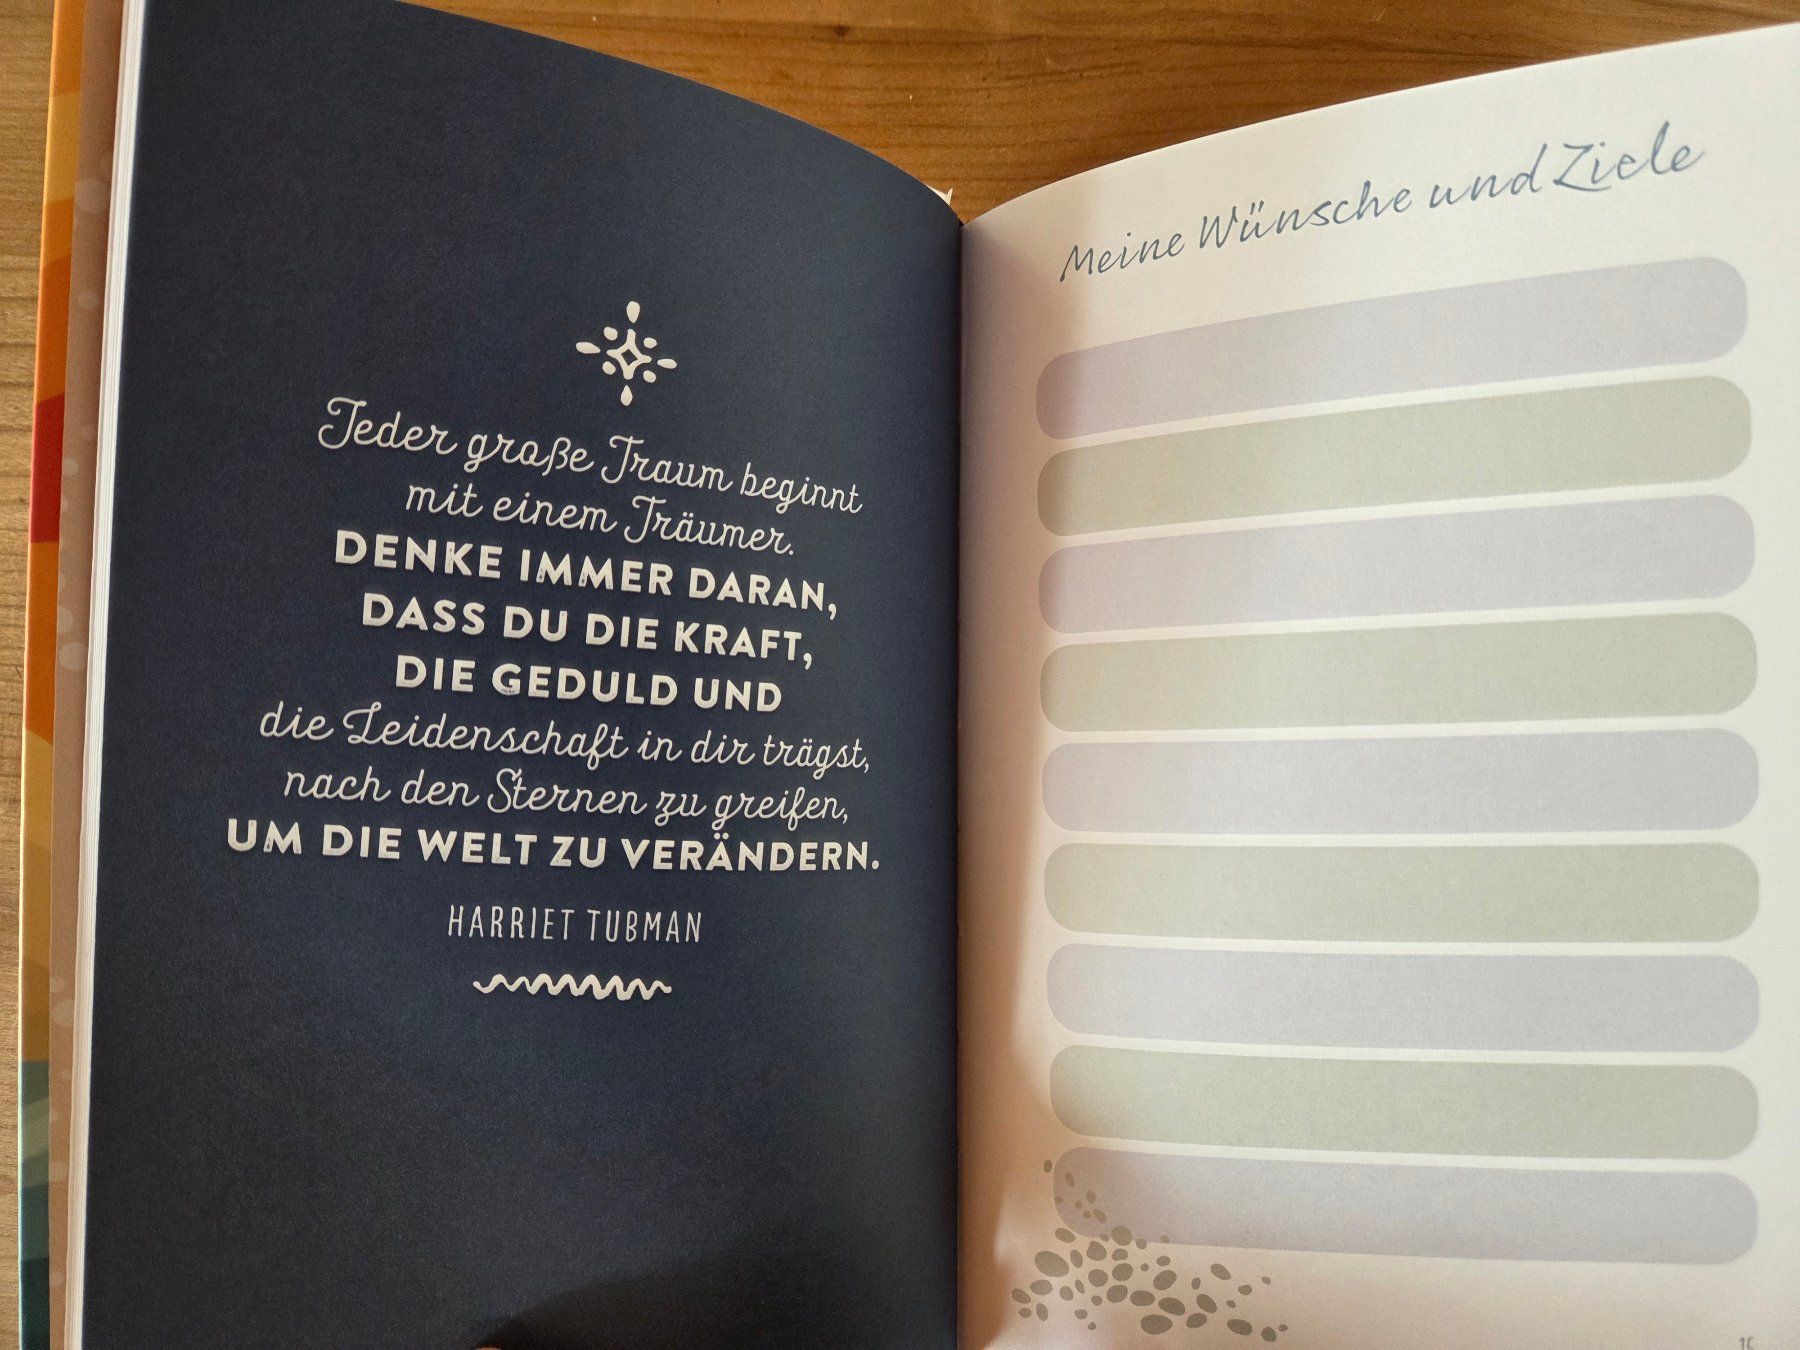 Jeder große Traum beginnt
mit einem Träumer.
DENKE IMMER DARAN,
DASS DU DIE KRAFT,
DIE GEDULD UND
die Leidenschaft in dir trägst,
nach den Sternen zu greifen,
UM DIE WELT ZU VERÄNDERN.
HARRIET TUBMAN
Meine Wünsche und Ziele